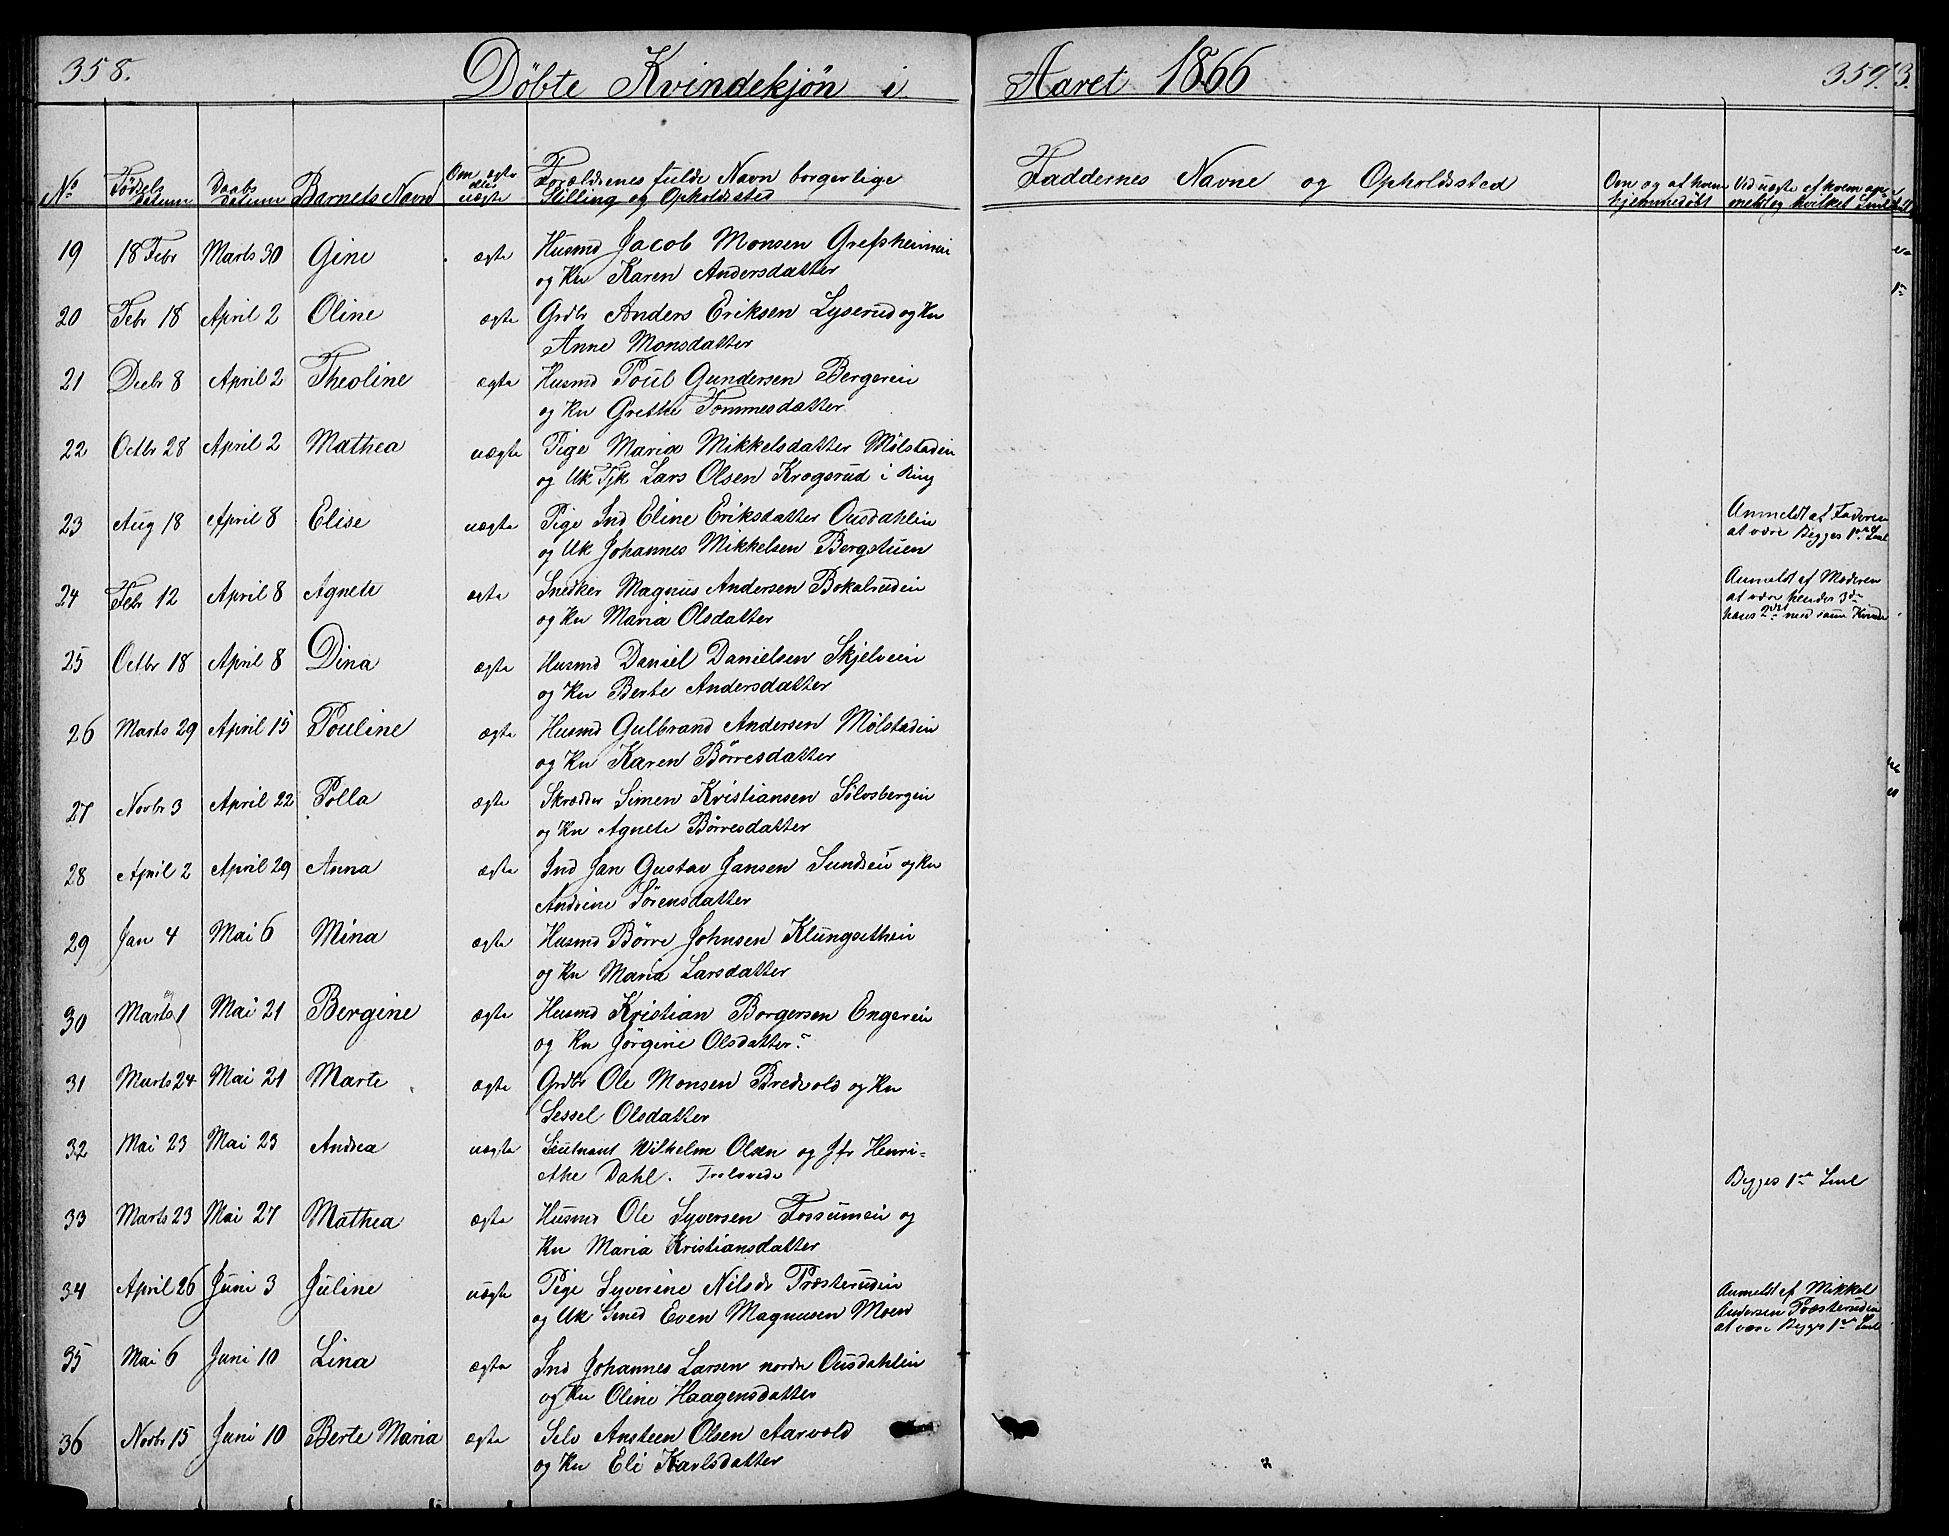 358. Döbte Kvindekjøn i Aaret 1866 359.
No Födsels datum Daabs datum Barnets Navn Om ægte eller uægte Forældrenes fulde Navn borgerlige Stilling og Opholdssted Faddernes Navne og Opholdssted Om og af hvem hjemmedøbt Ved uægte af hvem
19 18 Febr Marts 30 Gine ægte Husmd Jacob Monsen Grefsheimei
og Ku Karen Andersdatter
20 Febr 18 April 2 Oline ægte Grdbr Anders Eriksen Lyserud og Ku
Anne Monsdatter
21 Decbr 8 April 2 Theoline ægte Husmd Poul Gundersen Bergerei
og Ku Grethe Tommesdatter
22 Octbr 28 April 2 Mathea uægte Pige Maria Mikkelsdatter Mølstadei
og Uk Tjk Lars Olsen Krogsrud i Ring
23 Aug 18 April 8 Elise uægte Pige Ind Eline Eriksdatter Ousdahlei
og Uk Johannes Mikkelsen Bergstuen
Anmeldt af Faderen
at være Begges 1ste Leul
24 Febr 12 April 8 Agnete ægte Snedker Magnus Andersen Bokalrudei
og Ku Maria Olsdatter
Anmeldt af Moderen
at være hendes 3de
hans 2det med samme Kvinde
25 Octbr 18 April 8 Dina ægte Husmd Daniel Danielsen Skjelvei
og Ku Berte Andersdatter
26 Marts 29 April 15 Pouline ægte Husmd Gulbrand Andersen Mølstadei
og Ku Karen Börresdatter
27 Novbr 3 April 22 Polla ægte Skrædder Simen Kristiansen Sölvsbergei
og Ku Agnete Börresdatter
28 April 2 April 29 Anna ægte Ind Jan Gustav Jansen Sundsei og Ku
Andrine Sörensdatter
29 Jan 4 Mai 6 Mina ægte Husmd Börre Johnsen Klungsethei
og Ku Maria Larsdatter
30 Marts 1 Mai 21 Bergine ægte Husmd Kristian Borgersen Engerei
og Ku Jörgine Olsdatter
31 Marts 24 Mai 21 Marte ægte Grdbr Ole Monsen Bredvold og Ku
Sessel Olsdatter
32 Mai 23 Mai 23 Andrea uægte Leutnant Wilhelm Olsen og Jfr Henri-
ethe Dahl. Trolovede
Begges 1ste Leul
33 Marts 23 Mai 27 Mathea ægte Husmd Ole Syversen Fossumei og
Ku Maria Kristiansdatter
34 April 26 Juni 3 Juline uægte Pige Syverine Nilsdr Præsterudei
og Uk Smed Even Magnusen Moen
Anmeldt af Mikkel
Andersen Præsteruden
at være Begges 1ste Leul
35 Mai 6 Juni 10 Lina ægte Ind Johannes Larsen nordre Ousdahlei
og Ku Oline Haagensdatter
36 Novbr 15 Juni 10 Berte Maria ægte Selv Ansteen Olsen Aarvold
og Ku Eli Karlsdatter